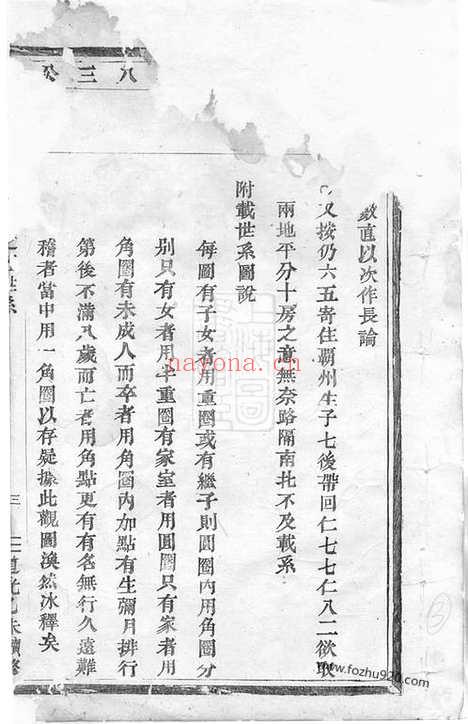 數直以次作長論
又按仍六五寄住覇州生子七後帶回仁七七仁八二欲取
兩地平分十房之意無奈路隔南北不及載系
附載世系圖說
每圖有子女者用重圈或有繼子則圓圈內用角圈分
别只有女者用半重圈有家室者用圓圈只有家者用
角圈有未成人而卒者用角圈內加點有生彌月排行
第後不滿八歲而亡者用角點更有有名無行久遠難
稽者當中用一角圈以存疑據此觀圖渙然冰釋矣
世系
三
未續修
八三癸
nayona.cn
www.fozhu920.com